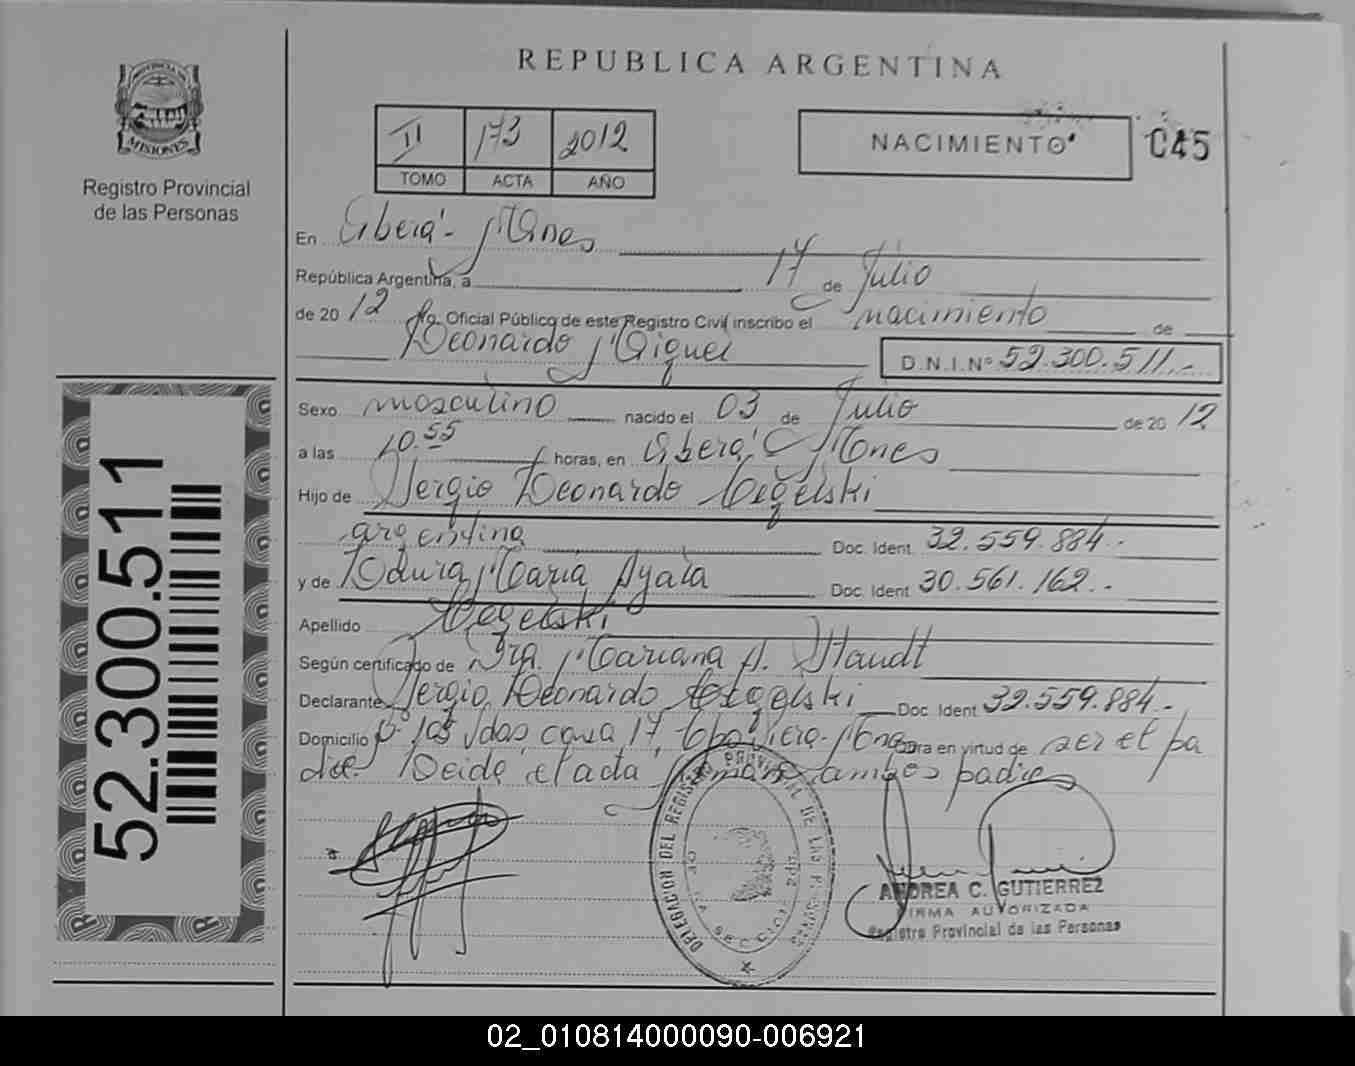 REPUBLICA ARGENTINA
PROVINCIA DE
MISIONES
Registro Provincial
de las Personas
II 173 2012
TOMO ACTA AÑO
NACIMIENTO
045
En Oberá - Mnes
República Argentina, a 17 de Julio
de 2012 Yo, Oficial Público de este Registro Civil inscribo el nacimiento de
Leonardo Miguel D.N.I.Nº 52.300.511.-
Sexo masculino nacido el 03 de Julio de 2012
a las 10.55 horas, en Oberá, Mnes
Hijo de Sergio Leonardo
argentina Doc. Ident. 32.559.884.-
y de Laura María Ayala Doc. Ident. 30.561.162.-
Apellido
Según certificado de Dra. Mariana A. Staudt
Declarante Sergio Leonardo Doc. Ident. 32.559.884.-
Domicilio casa 17 Mnes Obra en virtud de ser el pa
dre. Leída el acta firman ambos padres
52.300.511
DELEGACION DEL REGISTRO PROVINCIAL DE LAS PERSONAS
ANDREA C. GUTIERREZ
FIRMA AUTORIZADA
Registro Provincial de las Personas
02_010814000090-006921